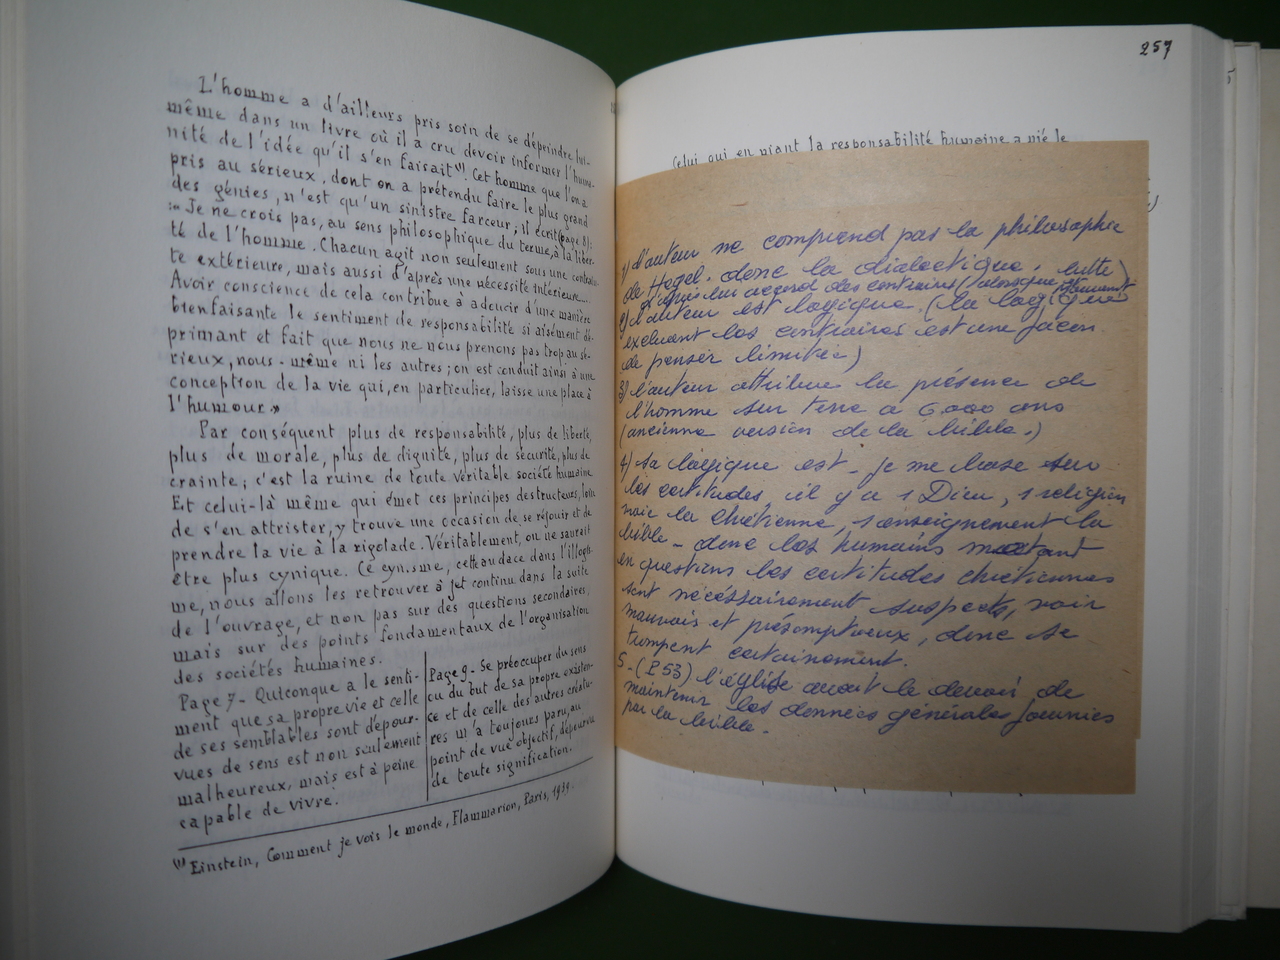 L'homme a d'ailleurs pris soin de se dépeindre lui-
même dans un livre où il a cru devoir informer l'huma-
nité de l'idée qu'il s'en faisait⁽¹⁾. Cet homme que l'on a
pris au sérieux, dont on a prétendu faire le plus grand
des génies, n'est qu'un sinistre farceur; il écrit (page 8):
:«Je ne crois pas, au sens philosophique du terme, à la liber-
té de l'homme. Chacun agit non seulement sous une contrain-
te extérieure, mais aussi d'après une nécessité intérieure...
Avoir conscience de cela contribue à adoucir d'une manière
bienfaisante le sentiment de responsabilité si aisément dé-
primant et fait que nous ne nous prenons pas trop au sé-
rieux, nous-même ni les autres; on est conduit ainsi à une
conception de la vie qui, en particulier, laisse une place à
l'humour.»
Par conséquent plus de responsabilité, plus de liberté,
plus de morale, plus de dignité, plus de sécurité, plus de
crainte; c'est la ruine de toute véritable société humaine.
Et celui-là même qui émet ces principes destructeurs, loin
de s'en attrister, y trouve une occasion de se réjouir et de
prendre la vie à la rigolade. Véritablement, on ne saurait
être plus cynique. Ce cynisme, cette audace dans l'illogis-
me, nous allons les retrouver à jet continu dans la suite
de l'ouvrage, et non pas sur des questions secondaires,
mais sur des points fondamentaux de l'organisation
des sociétés humaines.
Page 7 - Quiconque a le senti-
ment que sa propre vie et celle
de ses semblables sont dépour-
vues de sens est non seulement
malheureux, mais est à peine
capable de vivre.
Page 9 - Se préoccuper du sens
ou du but de sa propre existen-
ce et de celle des autres créatu-
res m'a toujours paru, au
point de vue objectif, dépourvu
de toute signification.
⁽¹⁾ Einstein, Comment je vois le monde, Flammarion, Paris, 1939.
257
Celui qui en niant la responsabilité humaine a nié le
1) l'auteur ne comprend pas la philosophie
de Hegel. donc la dialectique.
d'après lui accord des contraires (alors que lutte)
2) l'auteur est logique. (la logique
excluant les contraires est une façon
de penser limitée)
3) l'auteur attribue la présence de
l'homme sur terre à 6.000 ans
(ancienne version de la bible.)
4) sa logique est - je me base sur
les certitudes, il y a 1 Dieu, 1 religion
voie la chrétienne, 1 enseignement la
bible - donc les humains mettant
en questions les certitudes chrétiennes
sont nécessairement suspects, voir
mauvais et présomptueux, donc se
trompent certainement.
5 - (P 53) l'église avait le devoir de
maintenir les données générales fournies
par la bible.